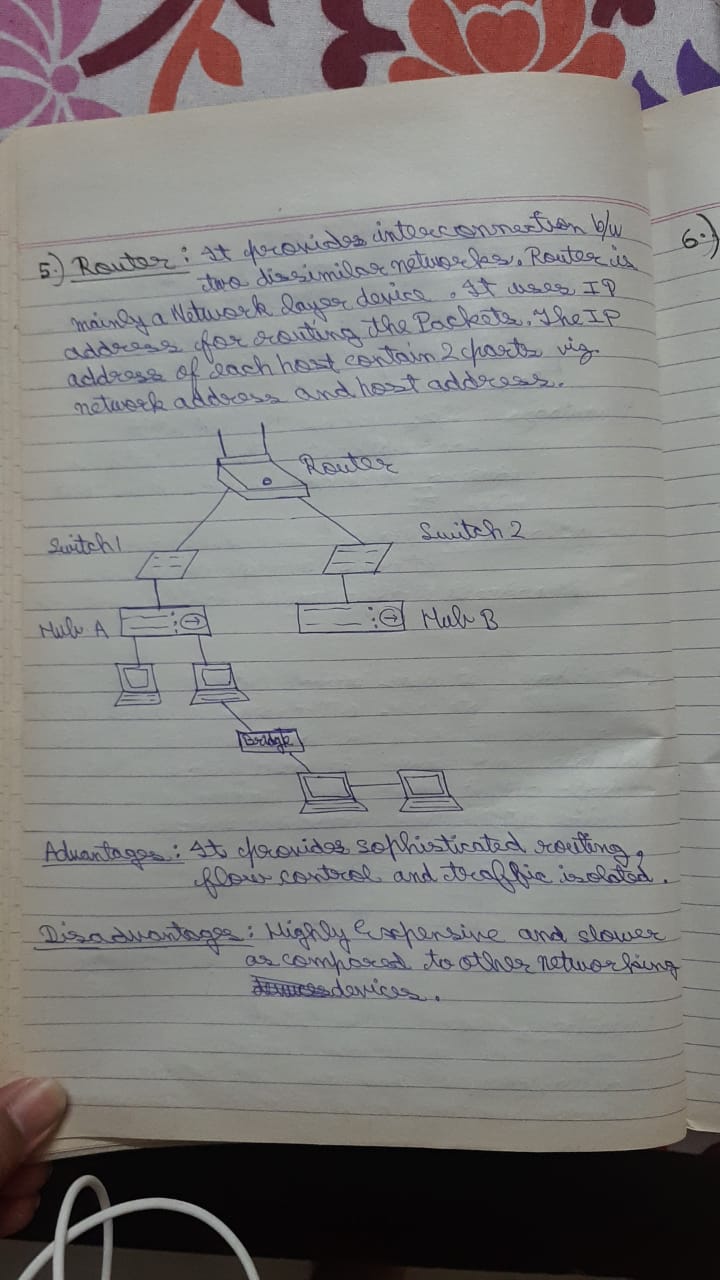 5.) Router : It provides interconnection b/w
two dissimilar networks. Router is
mainly a Network layer device. It uses IP
address for routing the Packets. The IP
address of each host contain 2 parts viz.
network address and host address.
Router
Switch 1
Switch 2
Hub A
Hub B
Bridge
Advantages : It provides sophisticated routing,
flow control and traffic isolated.
Disadvantages : Highly Expensive and slower
as compared to other networking
devices.
6.)